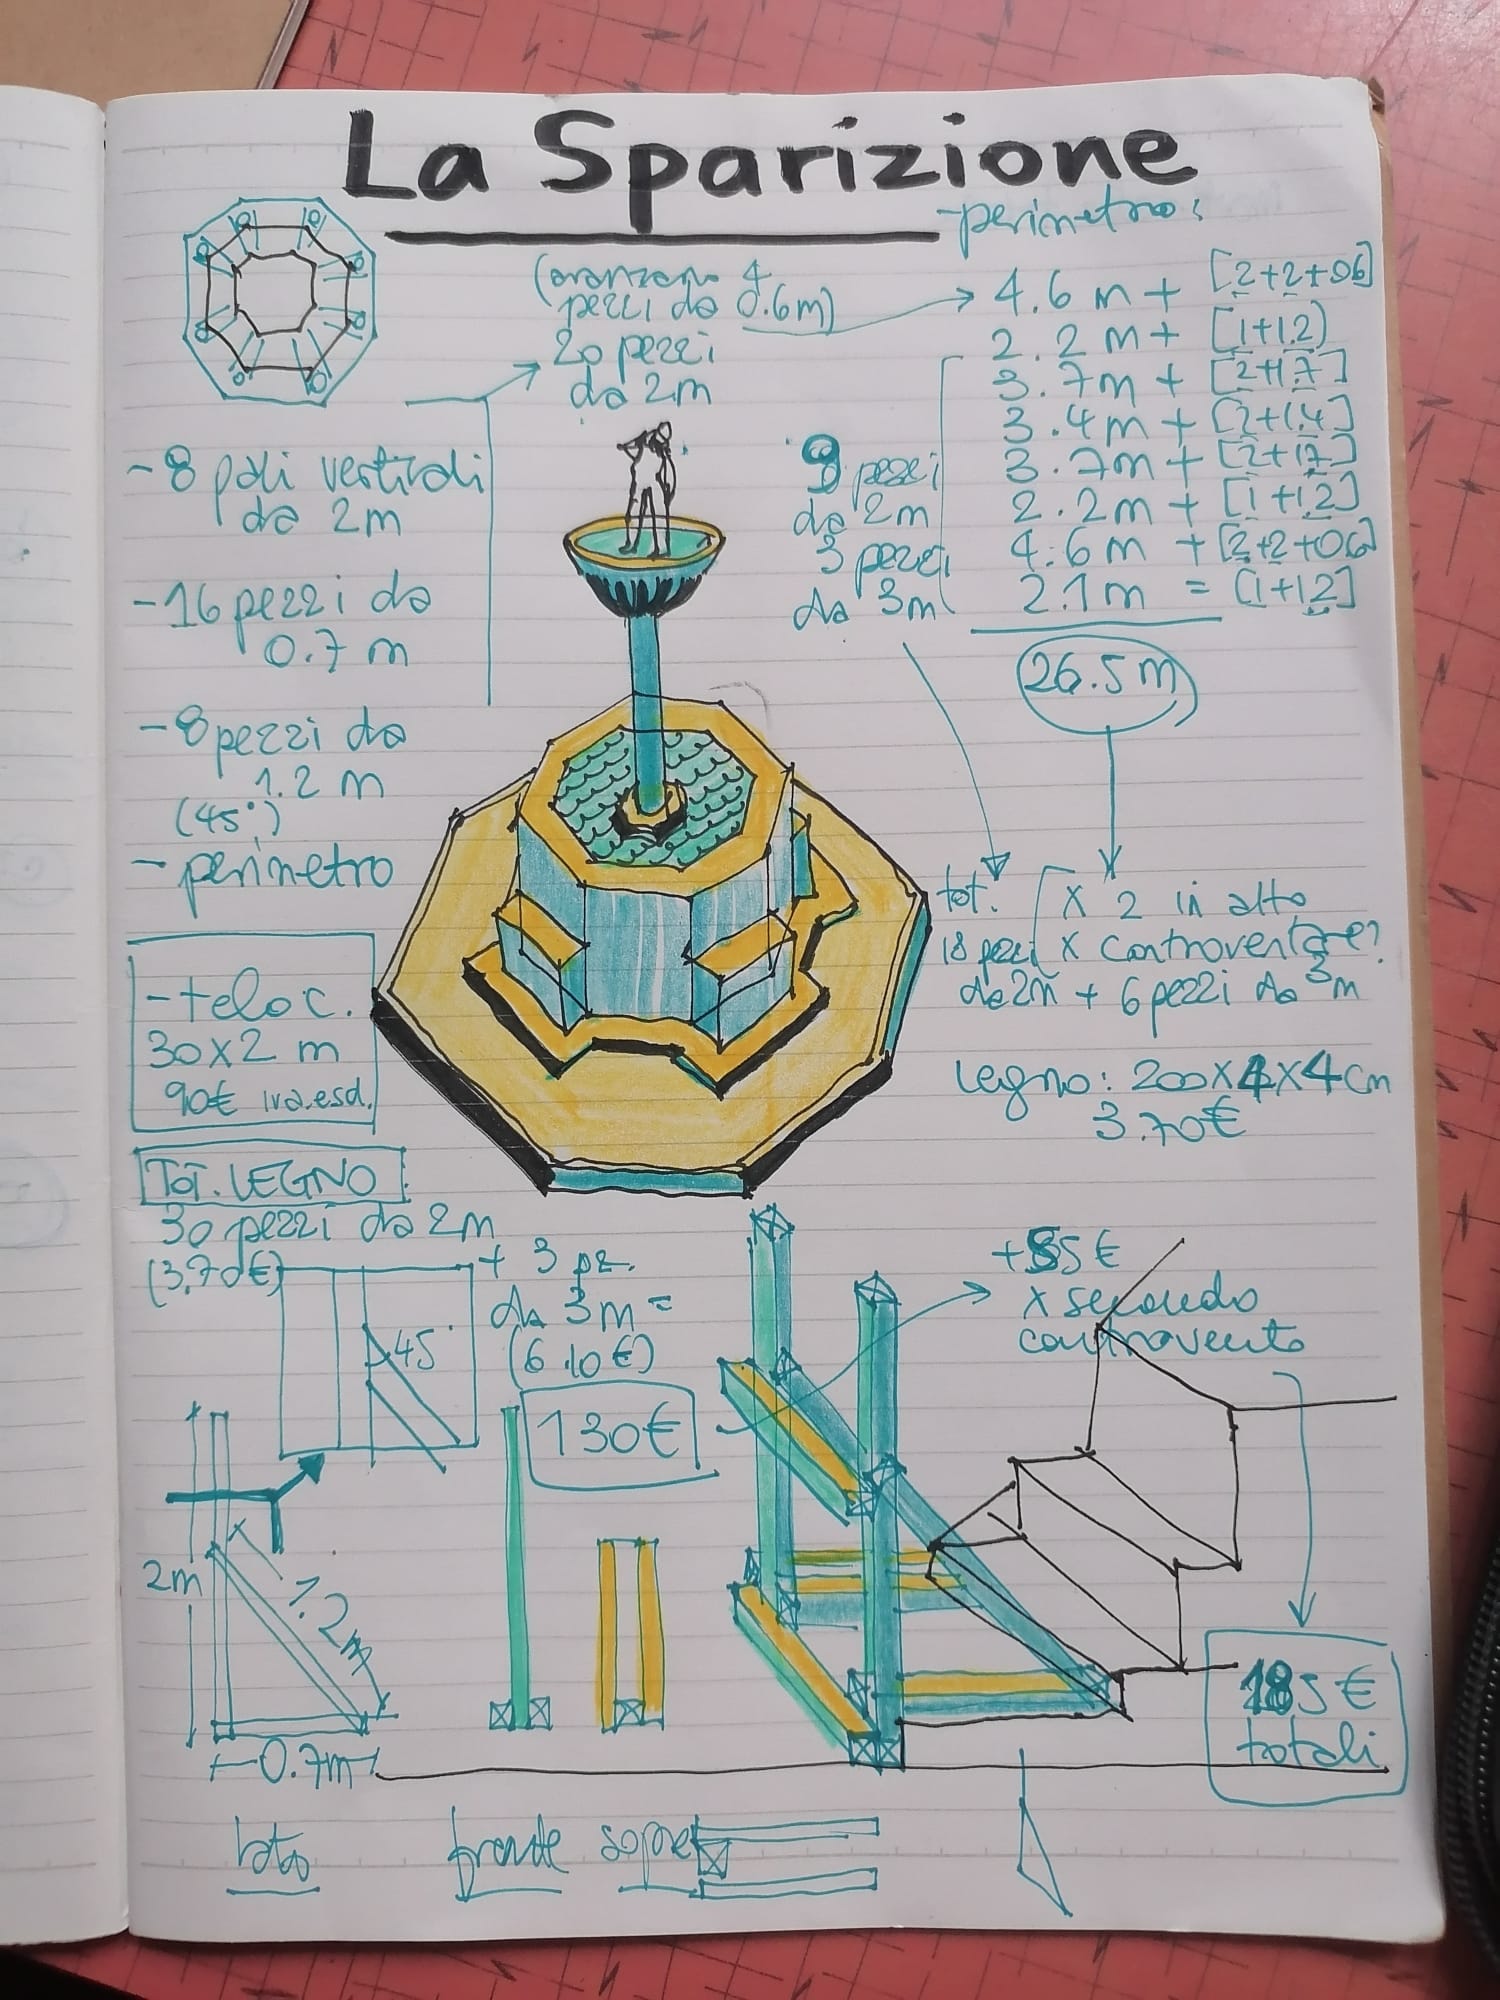 La Sparizione
- perimetro:
(avanzano 4
pezzi da 0.6m)
20 pezzi
da 2m
4.6 m + [2+2+06]
2.2 m + [1+1.2)
3.7m + [2+1.7]
3.4m + [2+1.4]
3.7m + [2+17]
2.2m + [1+1.2]
4.6m + [2+2+0.6]
2.1m = [1+12]
26.5 m
- 8 pali verticali
da 2m
- 16 pezzi da
0.7 m
- 8 pezzi da
1.2 m
(45°)
- perimetro
9 pezzi
da 2m
3 pezzi
da 3m
tot.
18 pezzi
x 2 in alto
x controventare?
da 2m + 6 pezzi da 3m
legno: 200x4x4cm
3.70€
- telo c.
30x2 m
90€ iva esd.
TOT. LEGNO:
30 pezzi da 2m
(3,70€)
+ 3 pz.
da 3m =
(6.10€)
130€
45°
+55€
x secondo
controvento
185€
totali
2m
1.2m
0.7m
lato
fronte
sopra